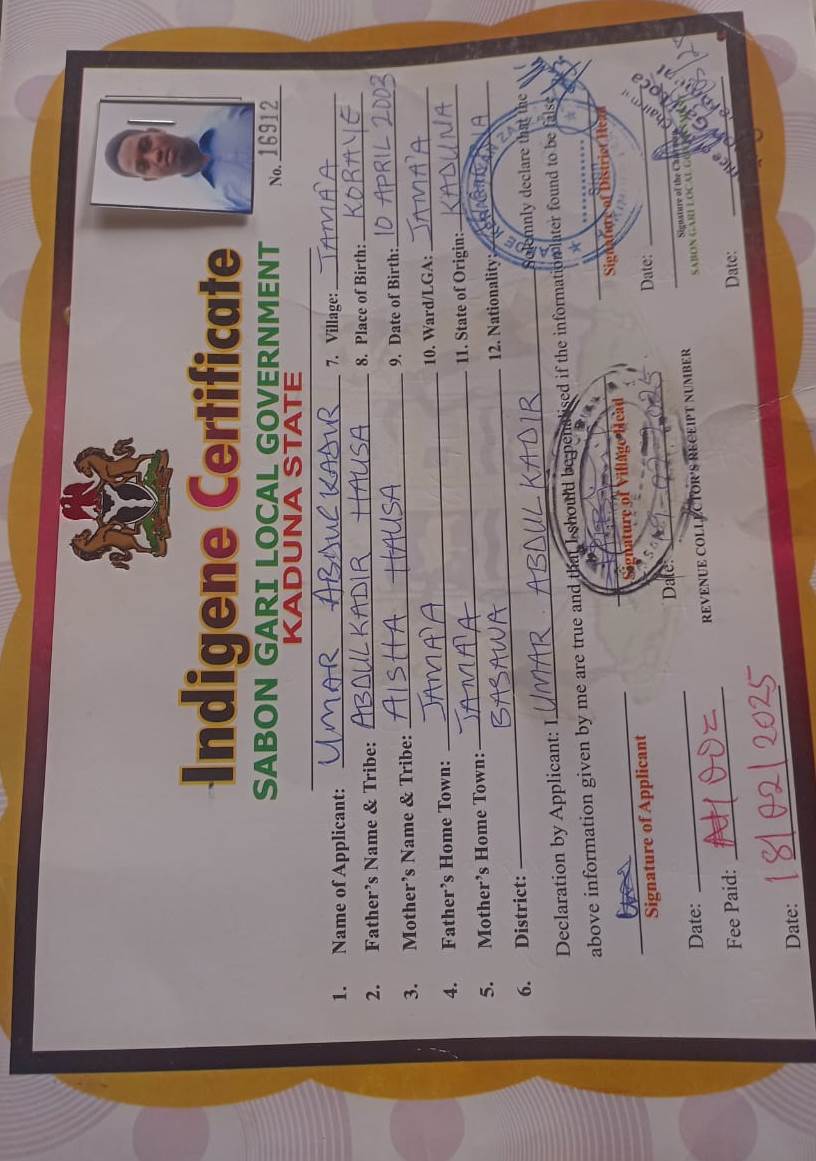 Indigene Certificate
SABON GARI LOCAL GOVERNMENT
KADUNA STATE
No. 16912
1. Name of Applicant: UMAR ABDULKADIR
2. Father's Name & Tribe: ABDULKADIR HAUSA
3. Mother's Name & Tribe: AISHA HAUSA
4. Father's Home Town: JAMA'A
5. Mother's Home Town: JAMA'A
6. District: BASAWA
7. Village: JAMA'A
8. Place of Birth: KORAYE
9. Date of Birth: 10 APRIL 2003
10. Ward/LGA: JAMA'A
11. State of Origin: KADUNA
12. Nationality:
Declaration by Applicant: I UMAR. ABDULKADIR Solemnly declare that the
above information given by me are true and that I should be penalised if the information later found to be false
Signature of Applicant
Signature of Village Head
Signature of District Head
Date:
Date:
Date:
Fee Paid:
REVENUE COLLECTOR'S RECEIPT NUMBER
Signature of the
SABON GARI LOCAL
Date: 18/02/2025
Date: